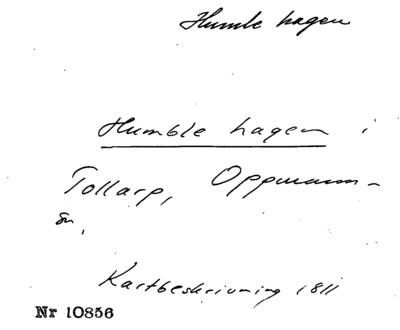 Humle hagen
Humble hagen i
Tollarp, Oppmann-
sn,
Kartbeskrivning 1811
Nr 10856